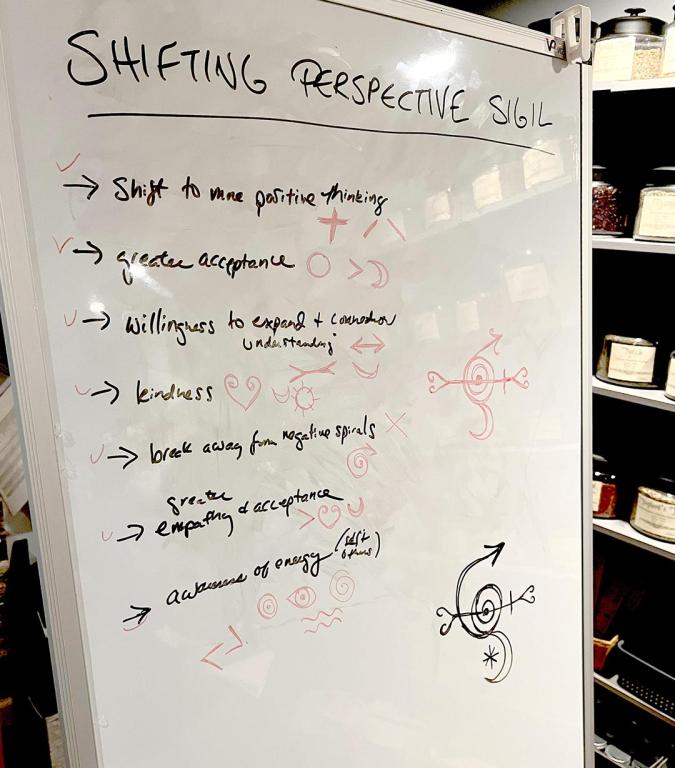 SHIFTING PERSPECTIVE SIGIL
→ Shift to more positive thinking
→ greater acceptance
→ willingness to expand +
understanding
→ kindness
→ break away from negative spirals
greater
→ empathy & acceptance
→ awareness of energy (self +
others)